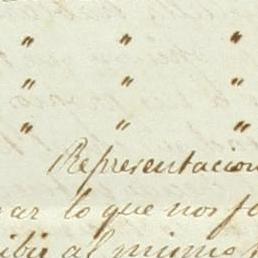 " " "
" " "
" " "
Representacion
lo que nos
al mismo